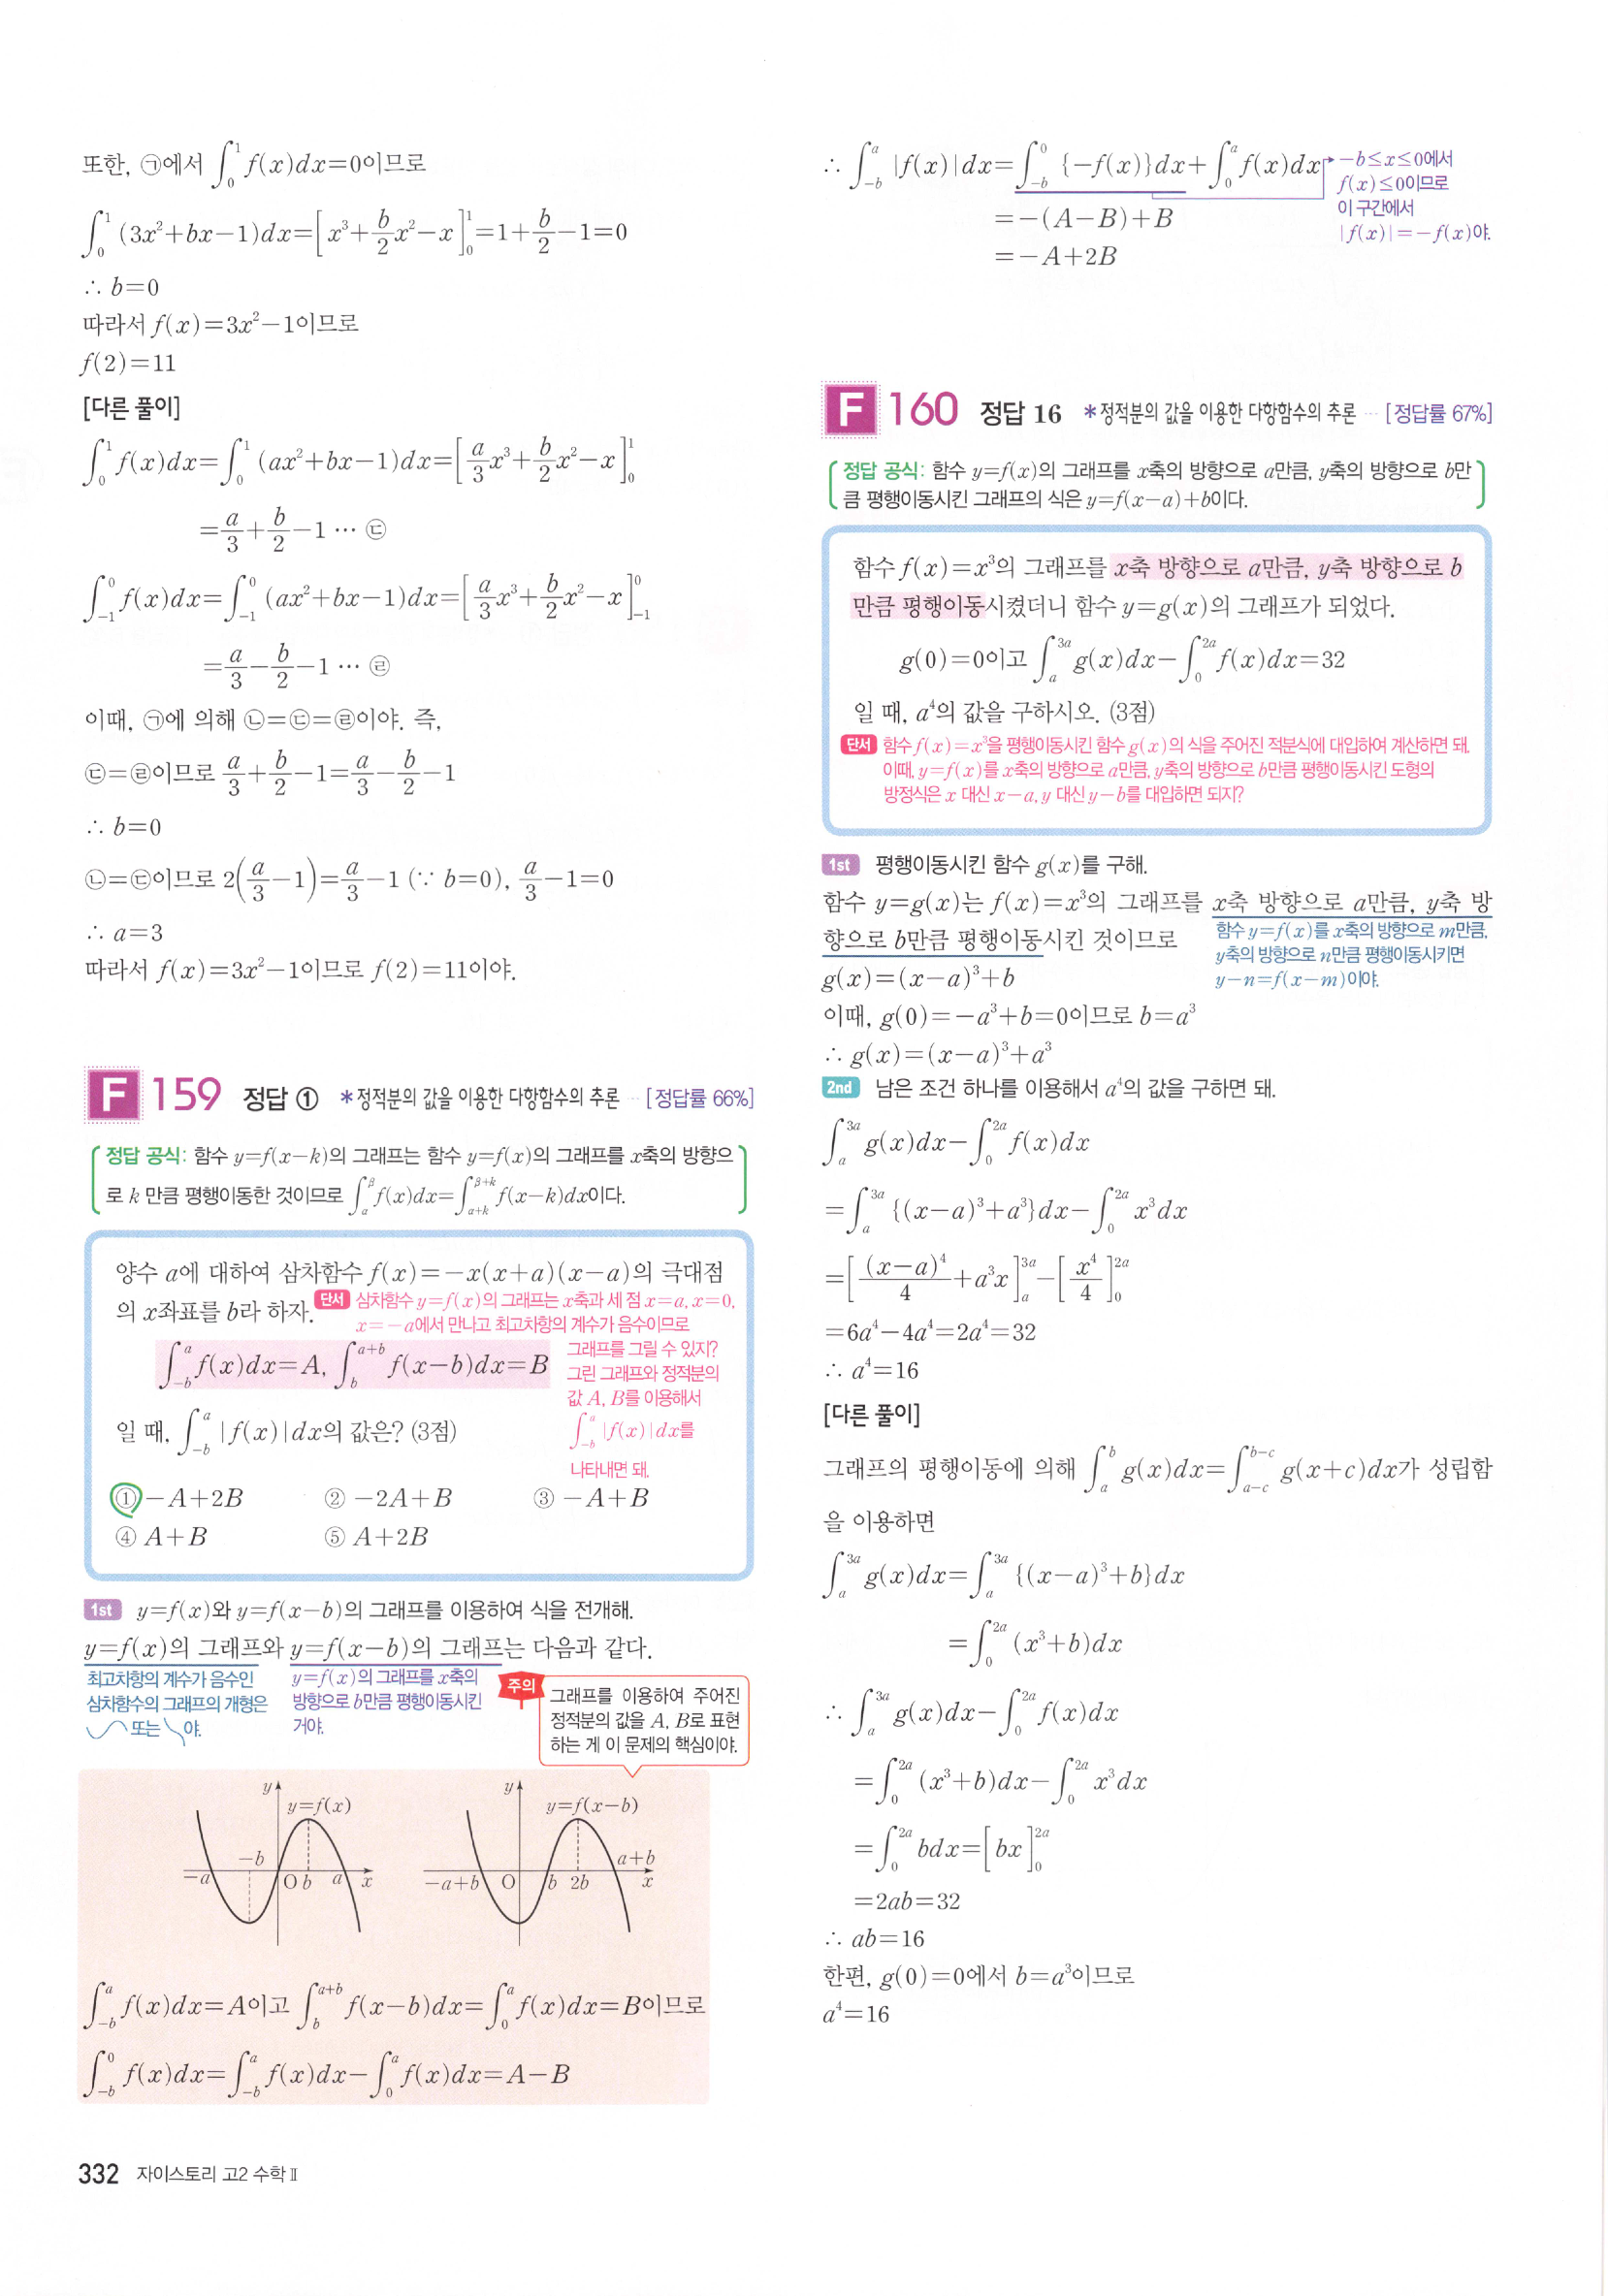 또한, ㉠에서 ∫₀¹ f(x)dx=0이므로
∫₀¹ (3x²+bx−1)dx=[x³+b/2 x²−x]₀¹=1+b/2−1=0
∴ b=0
따라서 f(x)=3x²−1이므로
f(2)=11
[다른 풀이]
∫₀¹ f(x)dx=∫₀¹ (ax²+bx−1)dx=[a/3 x³+b/2 x²−x]₀¹
=a/3+b/2−1 ⋯ ㉢
∫₋₁⁰ f(x)dx=∫₋₁⁰ (ax²+bx−1)dx=[a/3 x³+b/2 x²−x]₋₁⁰
=a/3−b/2−1 ⋯ ㉣
이때, ㉠에 의해 ㉡=㉢=㉣이야. 즉,
㉢=㉣이므로 a/3+b/2−1=a/3−b/2−1
∴ b=0
㉡=㉢이므로 2(a/3−1)=a/3−1 (∵ b=0), a/3−1=0
∴ a=3
따라서 f(x)=3x²−1이므로 f(2)=11이야.
F 159 정답 ① *정적분의 값을 이용한 다항함수의 추론 ⋯ [정답률 66%]
정답 공식: 함수 y=f(x−k)의 그래프는 함수 y=f(x)의 그래프를 x축의 방향으
로 k 만큼 평행이동한 것이므로 ∫_α^β f(x)dx=∫_{α+k}^{β+k} f(x−k)dx이다.
양수 a에 대하여 삼차함수 f(x)=−x(x+a)(x−a)의 극대점
의 x좌표를 b라 하자.
단서 삼차함수 y=f(x)의 그래프는 x축과 세 점 x=a, x=0,
x=−a에서 만나고 최고차항의 계수가 음수이므로
그래프를 그릴 수 있지?
그린 그래프와 정적분의
값 A, B를 이용해서
∫_{−b}^a |f(x)|dx를
나타내면 돼.
∫_{−b}^a f(x)dx=A, ∫_b^{a+b} f(x−b)dx=B
일 때, ∫_{−b}^a |f(x)|dx의 값은? (3점)
① −A+2B ② −2A+B ③ −A+B
④ A+B ⑤ A+2B
1st y=f(x)와 y=f(x−b)의 그래프를 이용하여 식을 전개해.
y=f(x)의 그래프와 y=f(x−b)의 그래프는 다음과 같다.
최고차항의 계수가 음수인
삼차함수의 그래프의 개형은
또는 야.
y=f(x)의 그래프를 x축의
방향으로 b만큼 평행이동시킨
거야.
주의
그래프를 이용하여 주어진
정적분의 값을 A, B로 표현
하는 게 이 문제의 핵심이야.
y y=f(x)
−b
−a O b a x
y y=f(x−b)
a+b
−a+b O b 2b x
∫_{−b}^a f(x)dx=A이고 ∫_b^{a+b} f(x−b)dx=∫₀^a f(x)dx=B이므로
∫_{−b}^0 f(x)dx=∫_{−b}^a f(x)dx−∫₀^a f(x)dx=A−B
332 자이스토리 고2 수학Ⅱ
∴ ∫_{−b}^a |f(x)|dx=∫_{−b}^0 {−f(x)}dx+∫₀^a f(x)dx
=−(A−B)+B
=−A+2B
−b≤x≤0에서
f(x)≤0이므로
이 구간에서
|f(x)|=−f(x)야.
F 160 정답 16 *정적분의 값을 이용한 다항함수의 추론 ⋯ [정답률 67%]
정답 공식: 함수 y=f(x)의 그래프를 x축의 방향으로 a만큼, y축의 방향으로 b만
큼 평행이동시킨 그래프의 식은 y=f(x−a)+b이다.
함수 f(x)=x³의 그래프를 x축 방향으로 a만큼, y축 방향으로 b
만큼 평행이동시켰더니 함수 y=g(x)의 그래프가 되었다.
g(0)=0이고 ∫_a^{3a} g(x)dx−∫₀^{2a} f(x)dx=32
일 때, a⁴의 값을 구하시오. (3점)
단서 함수 f(x)=x³을 평행이동시킨 함수 g(x)의 식을 주어진 적분식에 대입하여 계산하면 돼.
이때, y=f(x)를 x축의 방향으로 a만큼, y축의 방향으로 b만큼 평행이동시킨 도형의
방정식은 x 대신 x−a, y 대신 y−b를 대입하면 되지?
1st 평행이동시킨 함수 g(x)를 구해.
함수 y=g(x)는 f(x)=x³의 그래프를 x축 방향으로 a만큼, y축 방
향으로 b만큼 평행이동시킨 것이므로
함수 y=f(x)를 x축의 방향으로 m만큼,
y축의 방향으로 n만큼 평행이동시키면
y−n=f(x−m)이야.
g(x)=(x−a)³+b
이때, g(0)=−a³+b=0이므로 b=a³
∴ g(x)=(x−a)³+a³
2nd 남은 조건 하나를 이용해서 a⁴의 값을 구하면 돼.
∫_a^{3a} g(x)dx−∫₀^{2a} f(x)dx
=∫_a^{3a} {(x−a)³+a³}dx−∫₀^{2a} x³dx
=[(x−a)⁴/4+a³x]_a^{3a}−[x⁴/4]₀^{2a}
=6a⁴−4a⁴=2a⁴=32
∴ a⁴=16
[다른 풀이]
그래프의 평행이동에 의해 ∫_a^b g(x)dx=∫_{a−c}^{b−c} g(x+c)dx가 성립함
을 이용하면
∫_a^{3a} g(x)dx=∫_a^{3a} {(x−a)³+b}dx
=∫₀^{2a} (x³+b)dx
∴ ∫_a^{3a} g(x)dx−∫₀^{2a} f(x)dx
=∫₀^{2a} (x³+b)dx−∫₀^{2a} x³dx
=∫₀^{2a} bdx=[bx]₀^{2a}
=2ab=32
∴ ab=16
한편, g(0)=0에서 b=a³이므로
a⁴=16